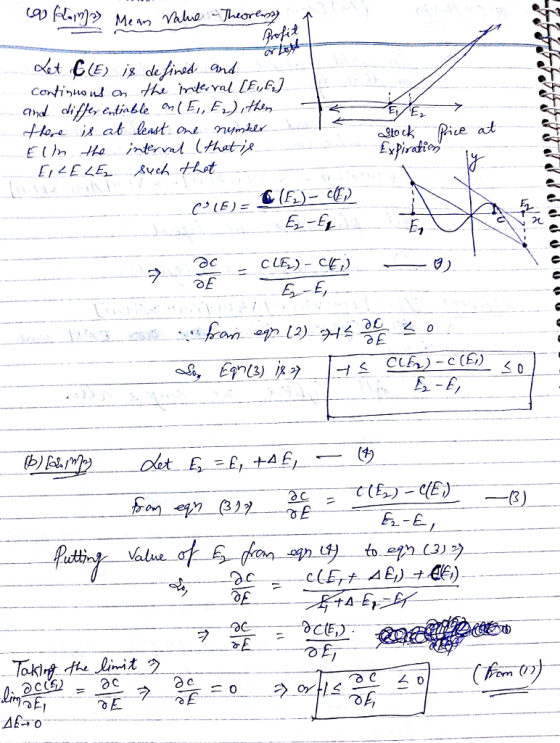 (a) [Soln]⇒ Mean Value Theorem⇒
Profit
or Loss
Let C(E) is defined and
continuous on the interval [E₁,E₂]
and differentiable on (E₁, E₂), then
there is at least one number
E (in the interval (that is
E₁<E<E₂ such that
E₁ E₂
Stock Price at
Expiration
y
E₁ c E₂ x
C'(E) = C(E₂) – C(E₁) / E₂ – E₁
⇒ ∂C/∂E = C(E₂) – C(E₁) / E₂ – E₁ —— 3)
∵ from eqn (2) ⇒ -1 ≤ ∂C/∂E ≤ 0
So, Eqn(3) is ⇒ -1 ≤ C(E₂) – C(E₁) / E₂ – E₁ ≤ 0
(b) [Soln]⇒ Let E₂ = E₁ + ΔE₁ — (4)
from eqn (3)⇒ ∂C/∂E = C(E₂) – C(E₁) / E₂ – E₁ —(3)
Putting value of E₂ from eqn (4) to eqn (3) ⇒
So, ∂C/∂E = C(E₁ + ΔE₁) + C(E₁) / E₁ + Δ E₁ – E₁
⇒ ∂C/∂E = ∂C(E₁)/∂E₁.
Taking the limit ⇒
lim ∂C(E₁)/∂E₁ = ∂C/∂E ⇒ ∂C/∂E = 0 ⇒ or -1 ≤ ∂C/∂E₁ ≤ 0 (from (1))
ΔE→0